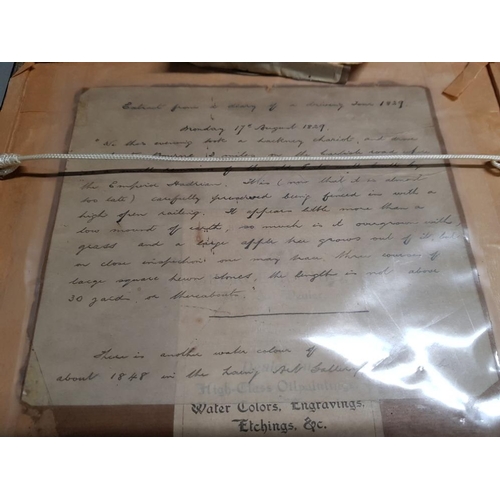 Extract from a diary of a driving Tour 1829.
Monday 17th August 1829
"We this evening took a hackney chariot, and
road
the Emperor Hadrian. It is (now that it is almost
too late) carefully preserved being fenced in with a
high open railing. It appears little more than a
low mound of earth, so much is it overgrown with
grass and a large apple tree grows out of it, but
on close inspection one may trace three courses of
large square hewn stones, the length is not above
30 yards, or thereabouts."
There is another water colour of
about 1848 in the Laing Art Gallery
High-Class Oil Paintings,
Water Colors, Engravings,
Etchings, &c.